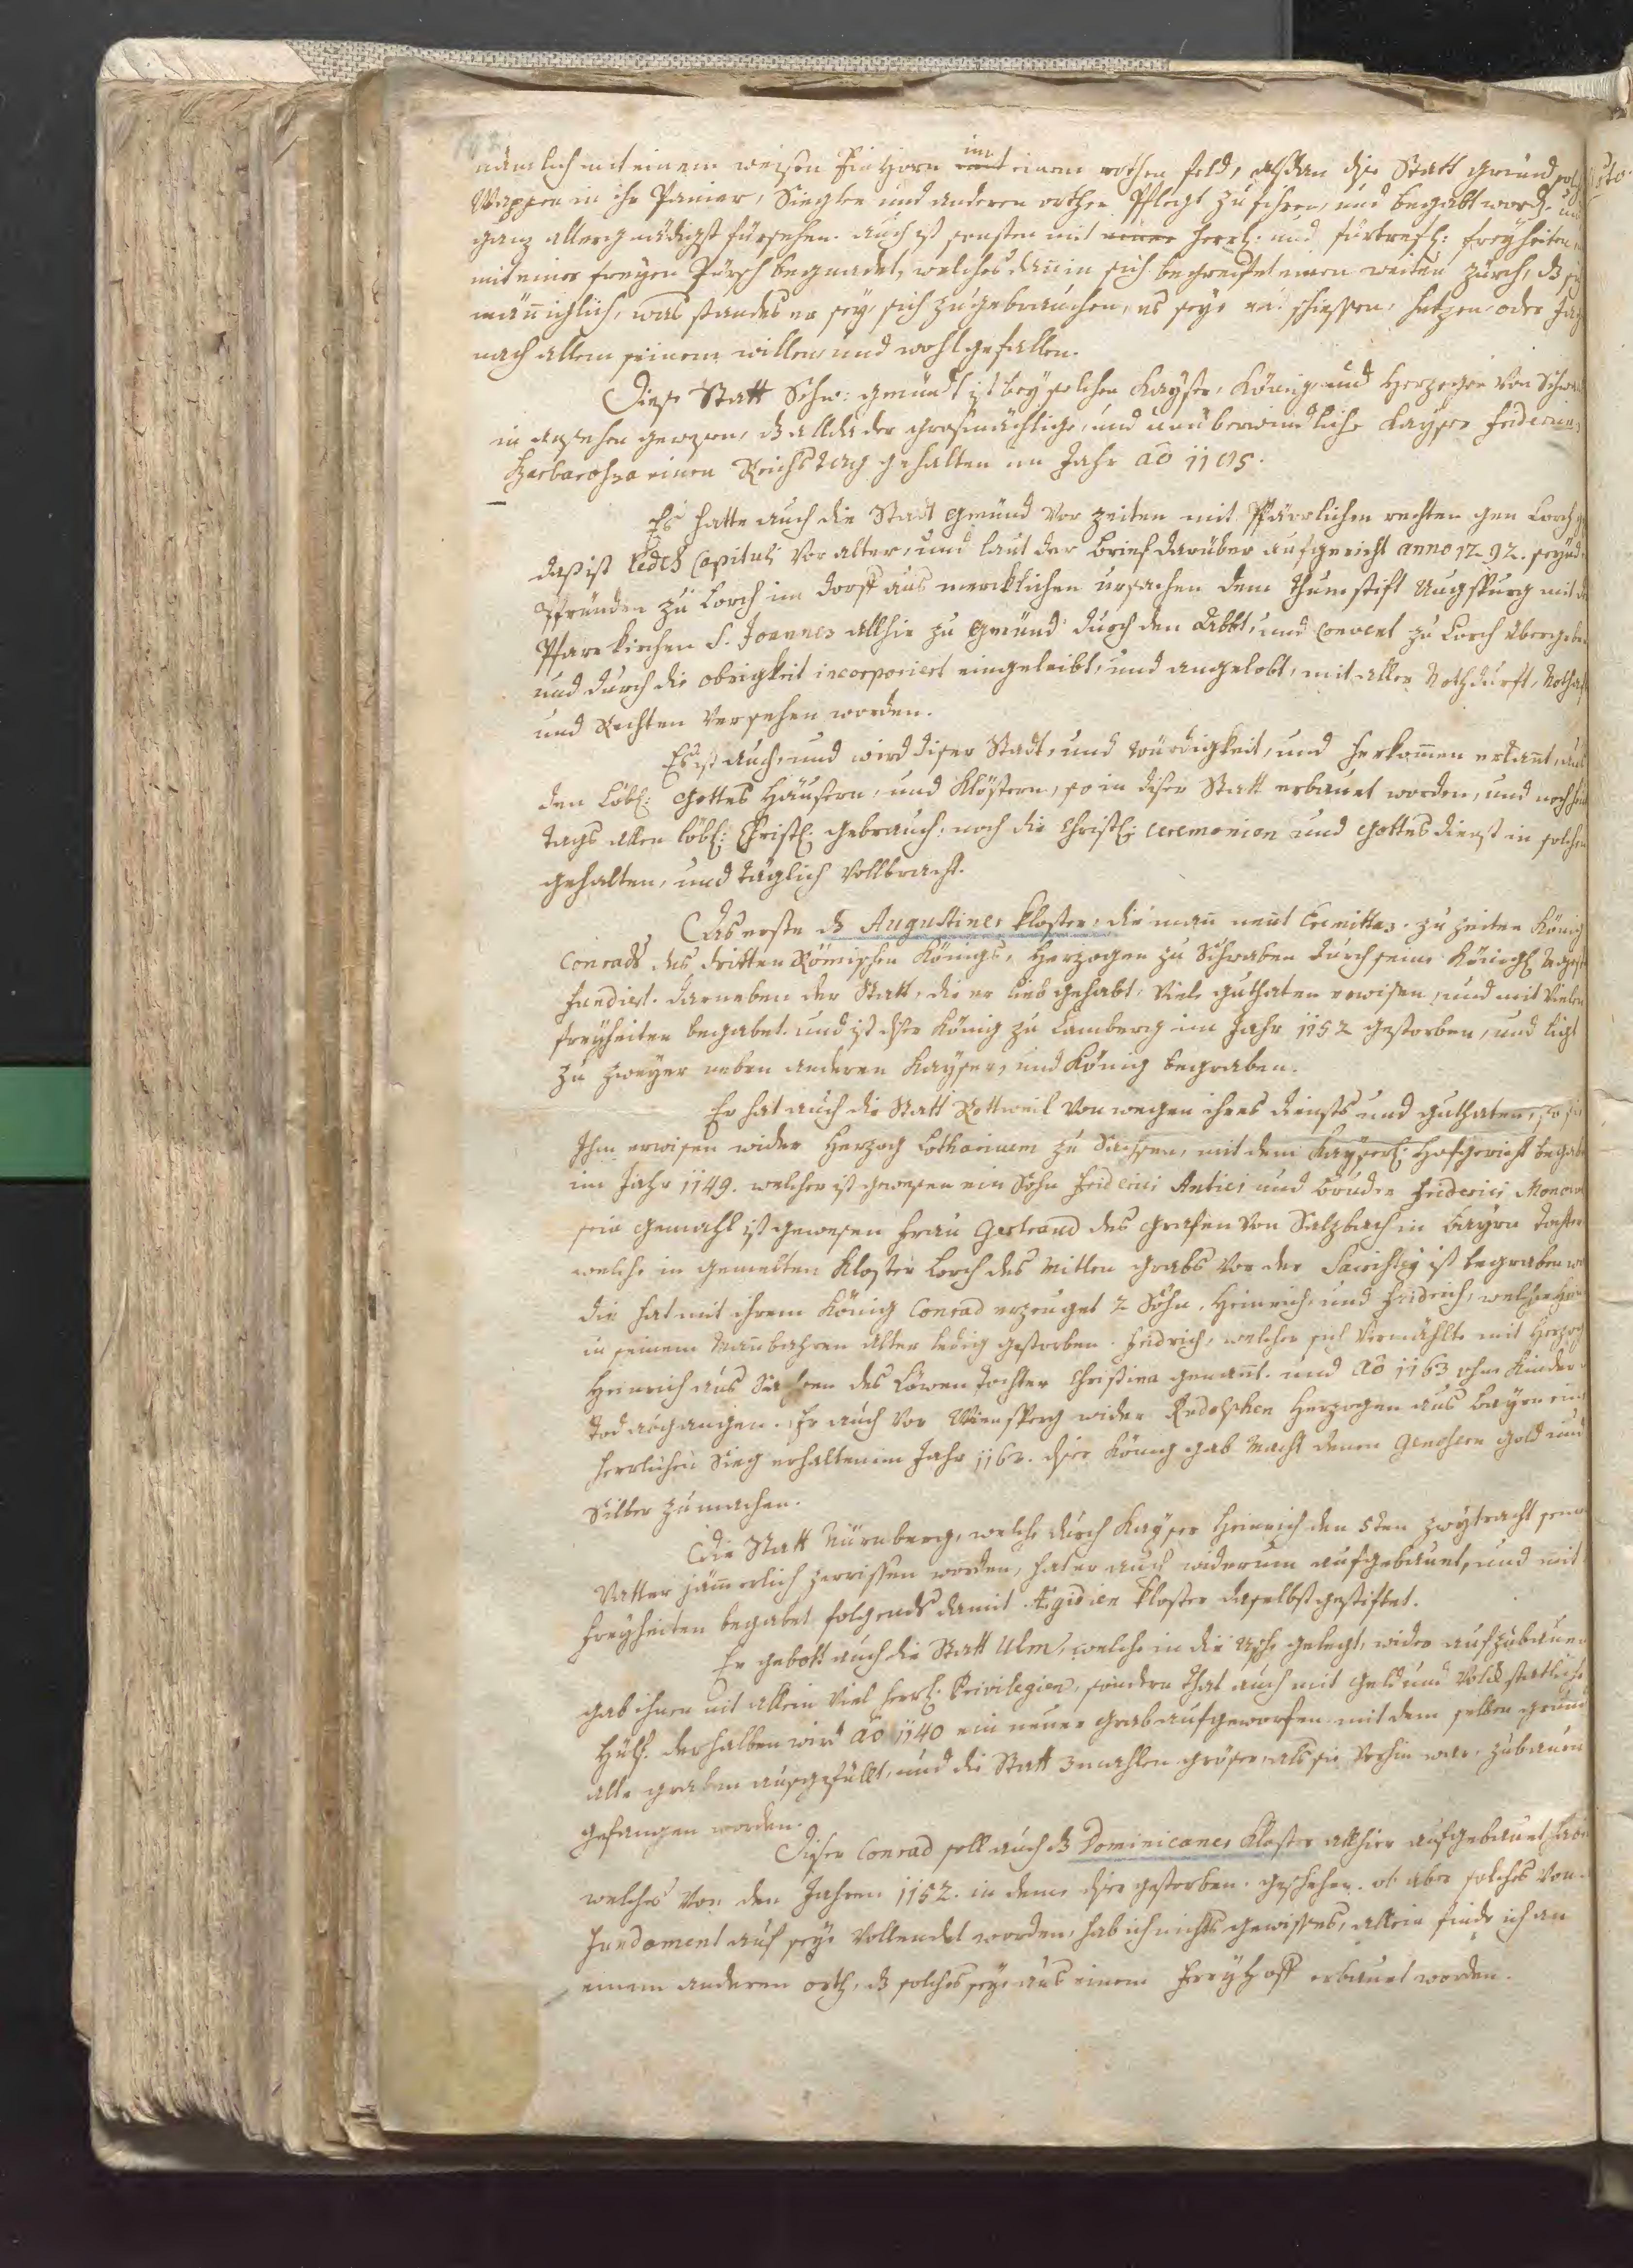 nämlich mit einem weisen Einhorn im einem rothen feld, alsdan dise Statt gmünd
Wappen in ihr Panier, Siegeln und anderen orthen Pflegt zu führen, und begabt word. und
ganz allergnädigst fürsehen. auch ist sonsten mit herrl: und fürtrefl: freyheiten,
mit einer freyen Pürsch begnadet, welches dan̄ in sich begreifet einen weiten zürch,
män̄ichlich, was standes er sey sich zu gebrauchen, es seye mit schiessen, hetzen oder
nach allem seinem willen und wohlgefallen.
Diese Statt Schw: gmündt ist bey solchen Kayser, König und Herzogen von
in ansehen gewesen, dß allda der grosmächtige, und unüberwindliche Kayser Fridericus
Barbarossa einen Reichstag gehalten im Jahr aō
Es hatte auch die Statt gmünd vor zeiten mit Pfärrlichen rechten gen Lorch
das ist Capituli vor alter, und laut der brief darüber aufgericht anno seynd
Pfründen zu Lorch im dorff aus mercklichen ursachen dem thumstift Augspurg mit
Pfarrkirchen S. Joannes allhie zu gmünd durch den Abbt, und Convent zu Lorch übergeben
und durch die obrigkeit incorporiert eingeleibt, und angelobt, mit aller Nothdurft,
und Rechten versehen worden.
Es ist auch, und wird diser Statt, und würdigkeit, und herkom̄en erkan̄t, aus
den löbl: Gottes Häusern, und Klöstern, so in diser Statt erbauet worden, und noch
tags allen löbl: Christl: gebrauch, noch die Christl: ceremonien und Gottesdienst in solchen
gehalten, und täglich vollbracht.
Das erste dß Augustiner kloster, die man̄ nen̄t Eremitas. zu zeiten König
Conrads des dritten Römischen Königs, Herzogen zu Schwaben durch seine Königl
fundirt. darneben der Statt, die er lieb gehabt, viele guthaten erwisen, und mit vielen
freyheiten begabet. und ist diser König zu Bamberg im Jahr 1152 gestorben, und ligt
zu neben anderen Kayser, und König begraben.
Er hat auch die Statt Rottweil von wegen ihres diensts und guthaten, so sie
Ihm erwisen wider Herzog Lotharium zu Sachsen, mit dem Kayserl: Hofgericht begabt
im Jahr 1149. welcher ist gewesen ein Sohn Friderici Antici und bruder Friderici
sein gemahl ist gewesen Frau Gertraud des grafen von Sulzbach in Bayrn tochter
welche in gemelten Kloster Lorch des mitlen grabs vor der ist begraben
die hat mit ihrem König Conrad erzeuget 2 Söhn, Heinrich, und Fridrich, welcher
in seinem Man̄bahren alter ledig gestorben. Fridrich, welcher sich vermählte mit Herzog
Heinrich aus Sachsen des Löwen tochter Christina genan̄t. und aō 1163 ohne Kinder
tod abgangen. Er auch vor Weinsperg wider Rudolphen Herzogen aus Bayrn ein
herrlichen Sieg erhalten im Jahr diser König gab macht denen Genosern gold und
Silber zu machen.
Die Statt Nürnberg, welche durch Kayser Heinrich den 5ten zwytracht
Vatter jäm̄erlich zerrissen worden, hat er auch widerum aufgebauet, und mit
freyheiten begabet folgends damit Ægidien kloster daselbst gestiftet.
Er gebott auch die Statt Ulm, welche in die asche gelegt, wider aufzubauen
gab ihnen nit allein viel herrl: Privilegien, sondern that auch mit geld und volck statliche
hülf. derhalben wird aō 1140 ein neuer grab aufgeworfen mit dem selben grund
alle graben ausgefüllt, und die Statt 3 mahlen gröser, als sie vorhin war, zu bauen
gefangen worden.
Diser Conrad soll auch dß Dominicaner Kloster allhier aufgebauet haben
welches vor den Jahren 1152. in dem diser gestorben. geschehen. ob aber solches von
Fundament auf seye vollendet worden, hab ich nichts gewisses, allein finde ich an
einem anderen orth, dß solches seye aus einem Freyhoff erbauet worden.